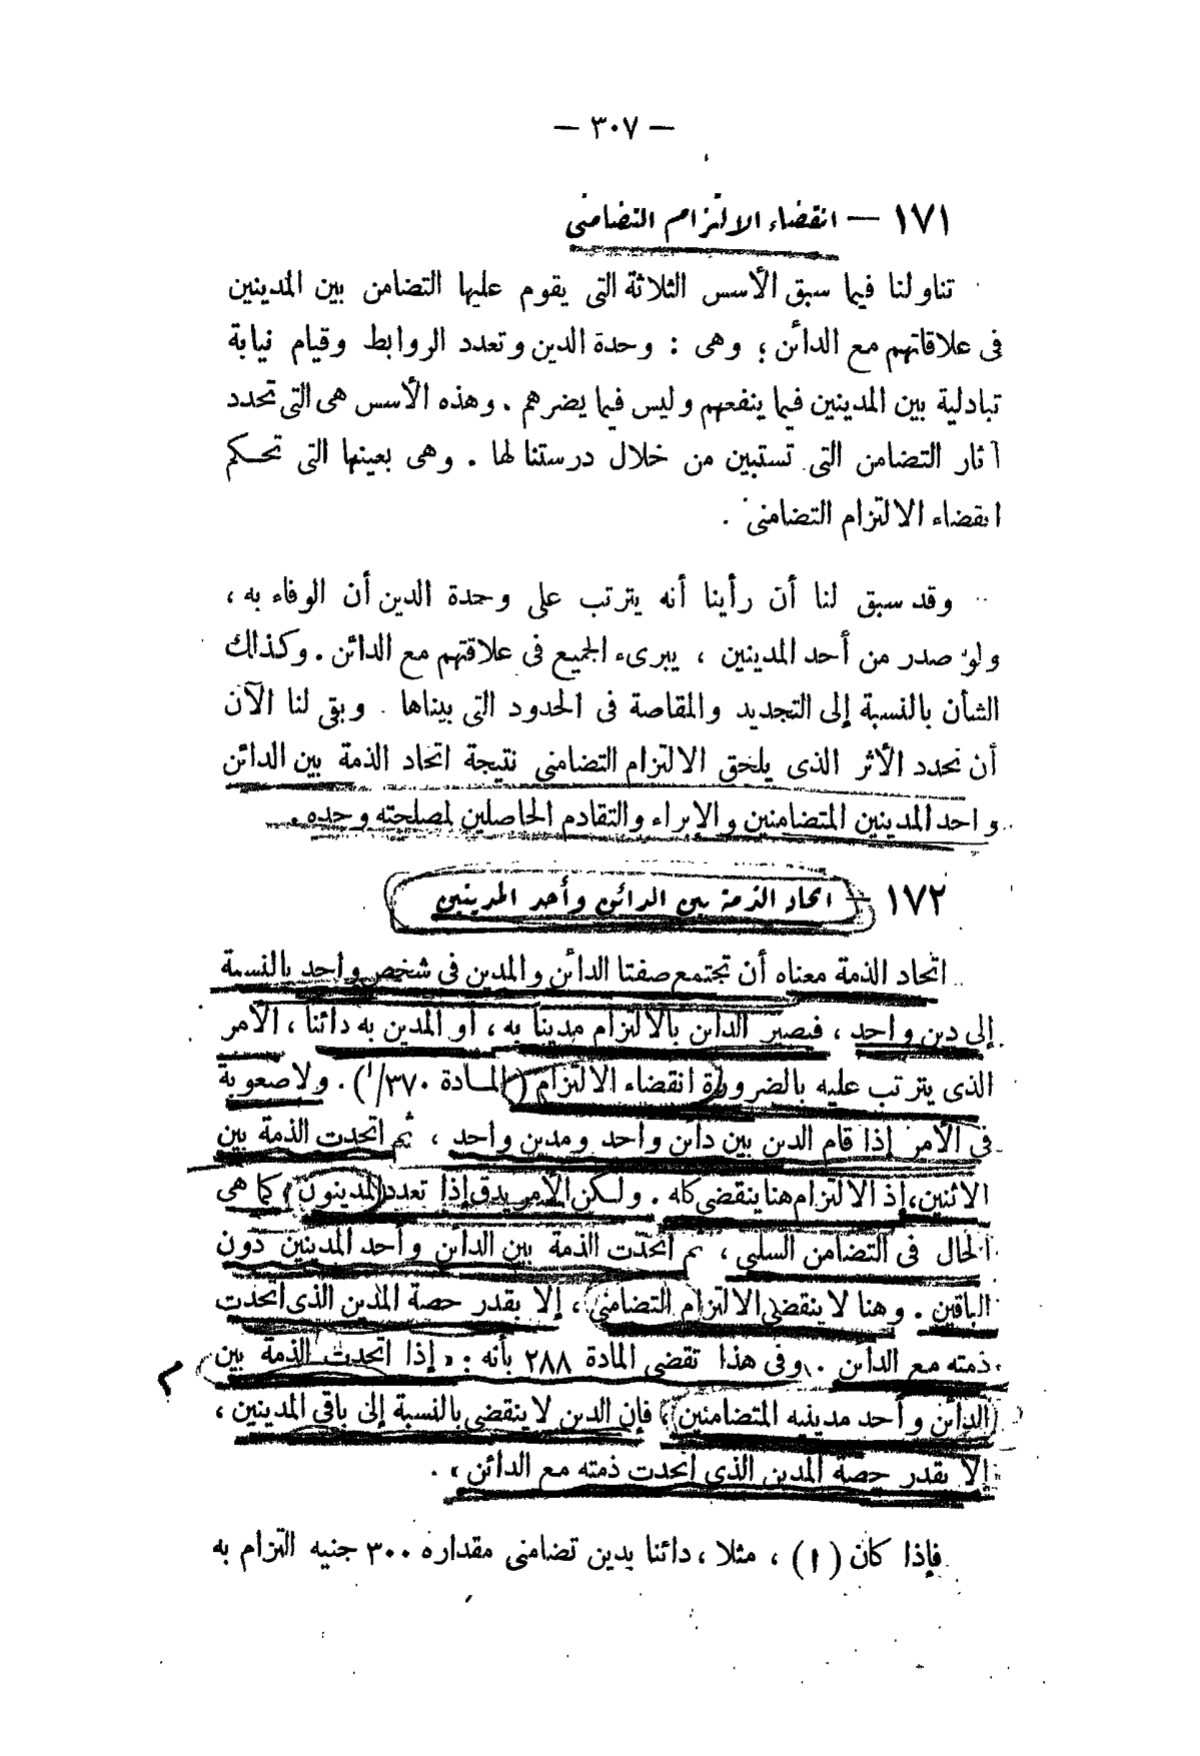 — ٣٠٧ —
١٧١ — انقضاء الالتزام التضامنى
تناولنا فيما سبق الأسس الثلاثة التى يقوم عليها التضامن بين المدينين
فى علاقاتهم مع الدائن ؛ وهى : وحدة الدين وتعدد الروابط وقيام نيابة
تبادلية بين المدينين فيما ينفعهم وليس فيما يضرهم . وهذه الأسس هى التى تحدد
آثار التضامن التى تستبين من خلال درستنا لها . وهى بعينها التى تحكم
انقضاء الالتزام التضامنى .
وقد سبق لنا أن رأينا أنه يترتب على وحدة الدين أن الوفاء به ،
ولو صدر من أحد المدينين ، يبرىء الجميع فى علاقتهم مع الدائن . وكذلك
الشأن بالنسبة إلى التجديد والمقاصة فى الحدود التى بيناها . وبقى لنا الآن
أن نحدد الأثر الذى يلحق الالتزام التضامنى نتيجة اتحاد الذمة بين الدائن
واحد المدينين المتضامنين والإبراء والتقادم الحاصلين لمصلحته وحده .
١٧٢ — اتحاد الذمة بين الدائن وأحد المدينين
اتحاد الذمة معناه أن تجتمع صفتا الدائن والمدين فى شخص واحد بالنسبة
إلى دين واحد ، فيصير الدائن بالالتزام مديناً به ، أو المدين به دائناً ، الأمر
الذى يترتب عليه بالضرورة انقضاء الالتزام ( المادة ٣٧٠/١ ) . ولا صعوبة
فى الأمر إذا قام الدين بين دائن واحد ومدين واحد ، ثم اتحدت الذمة بين
الاثنين ، إذ الالتزام هنا ينقضى كله . ولكن الأمر يدق إذا تعدد المدينون ، كما هى
الحال فى التضامن السلبى ، ثم اتحدت الذمة بين الدائن وأحد المدينين دون
الباقين . وهنا لا ينقضى الالتزام التضامنى ، إلا بقدر حصة المدين الذى اتحدت
ذمته مع الدائن . وفى هذا تقضى المادة ٢٨٨ بأنه : « إذا اتحدت الذمة بين
الدائن وأحد مدينيه المتضامنين ، فإن الدين لا ينقضى بالنسبة إلى باقى المدينين ،
إلا بقدر حصة المدين الذى اتحدت ذمته مع الدائن » .
فإذا كان ( ا ) ، مثلا ، دائنا بدين تضامنى مقداره ٣٠٠ جنيه التزام به